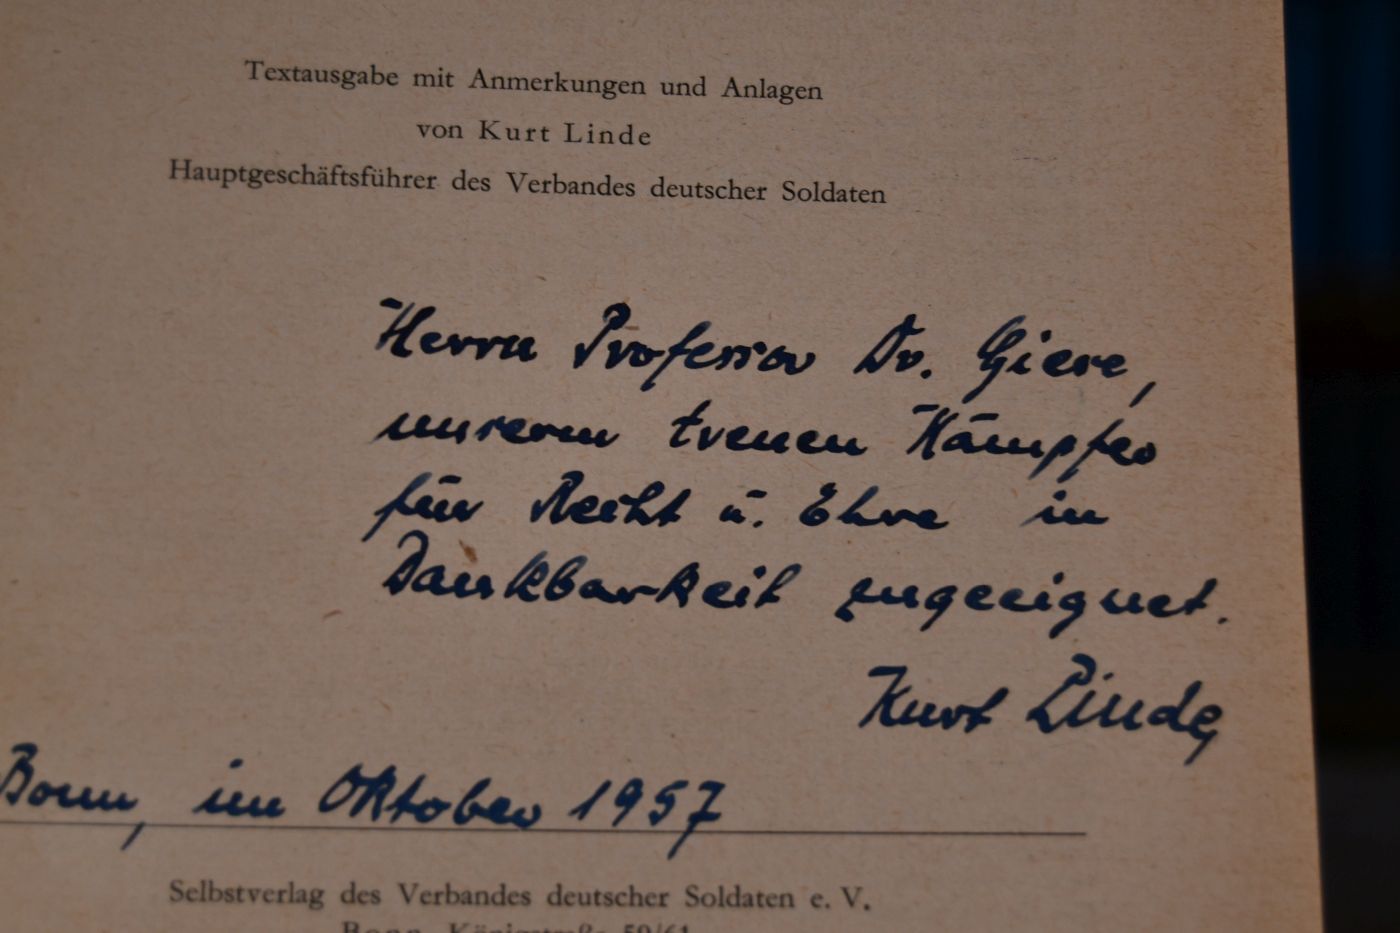 Textausgabe mit Anmerkungen und Anlagen
von Kurt Linde
Hauptgeschäftsführer des Verbandes deutscher Soldaten
Herrn Professor Dr. Giere,
unserem treuen Kämpfer
für Recht u. Ehre in
Dankbarkeit zugeeignet.
Kurt Linde
Bonn, im Oktober 1957
Selbstverlag des Verbandes deutscher Soldaten e. V.
Bonn, Königstraße 59/61